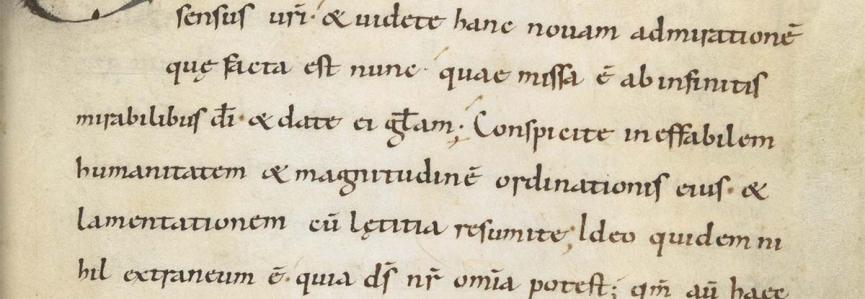 sensus uri̅· & uidete hanc nouam admiratione̅
quę facta est nunc· quae missa e̅ ab infinitis
mirabilibus di̅· & date ei gl̅am; Conspicite ineffabilem
humanitatem & magnitudine̅ ordinationis eius· &
lamentationem cu̅ lętitia resumite; Ideo quidem ni
hil extraneum e̅· quia ds̅ nr̅ omi̅a potest; qm̅ au̅ haec